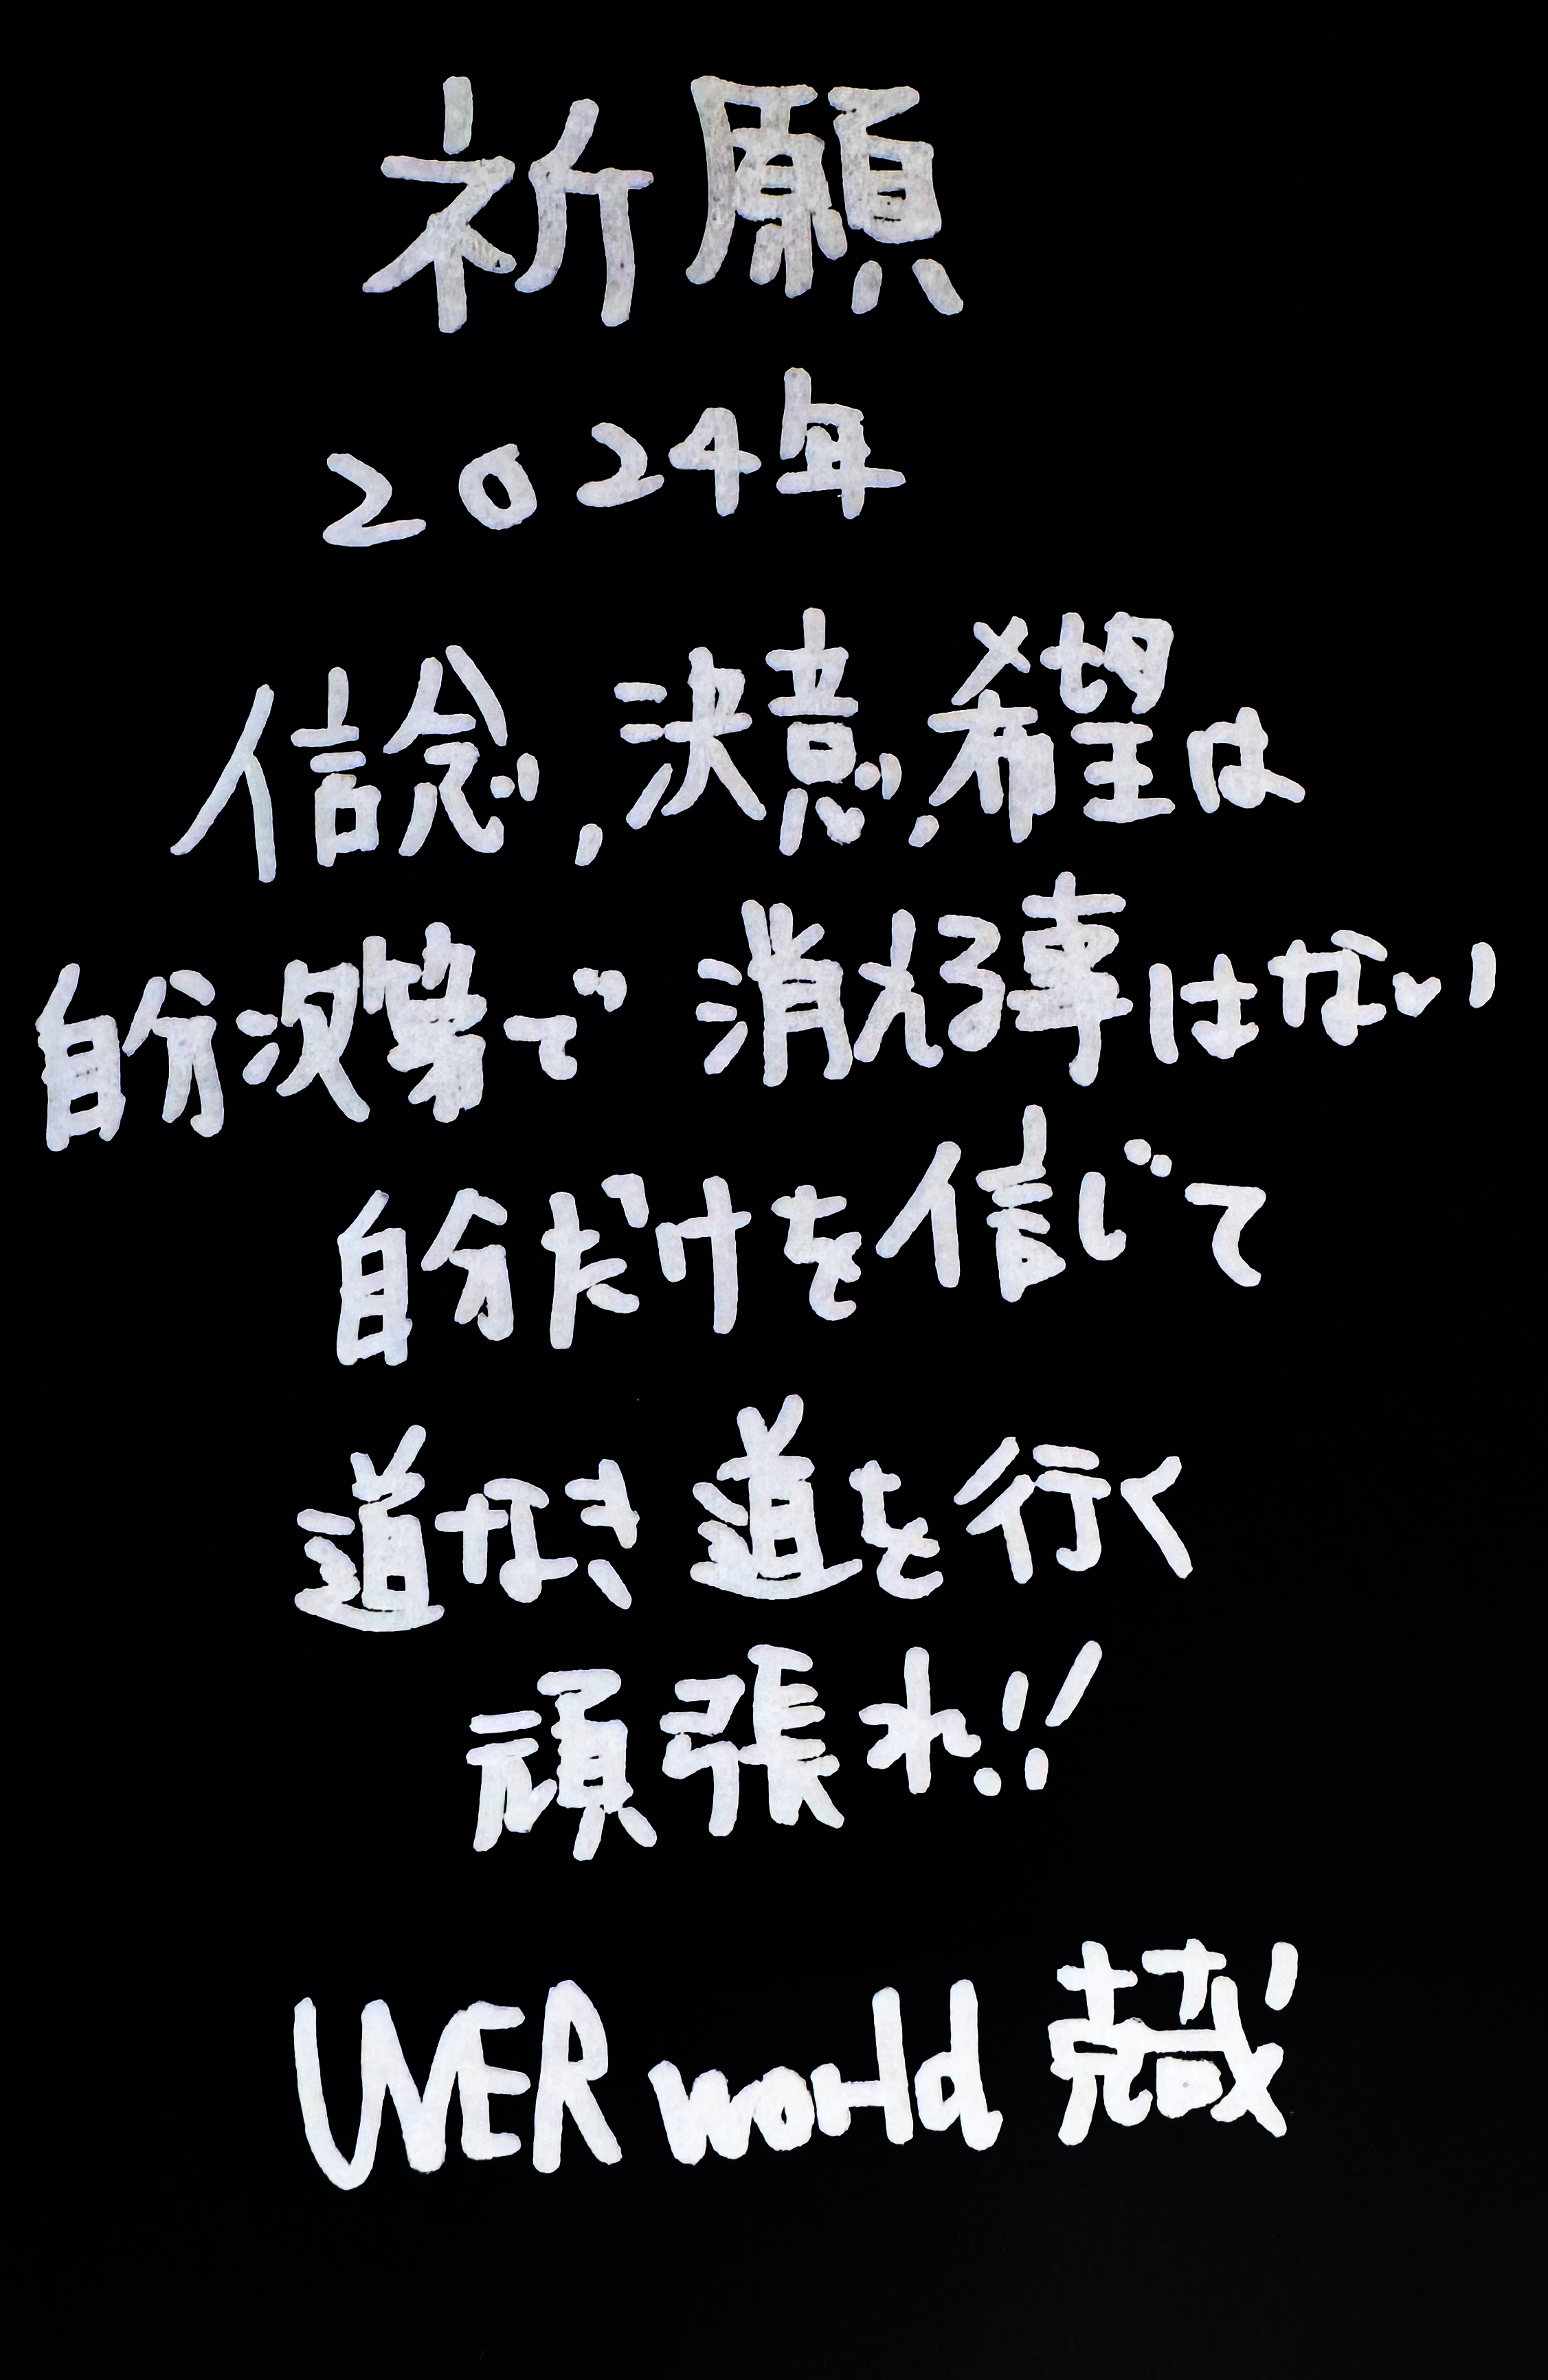 祈願
2024年
信念,決意,希望は
自分次第で消える事はない
自分だけを信じて
道なき道を行く
頑張れ!!
UVERworld 克哉